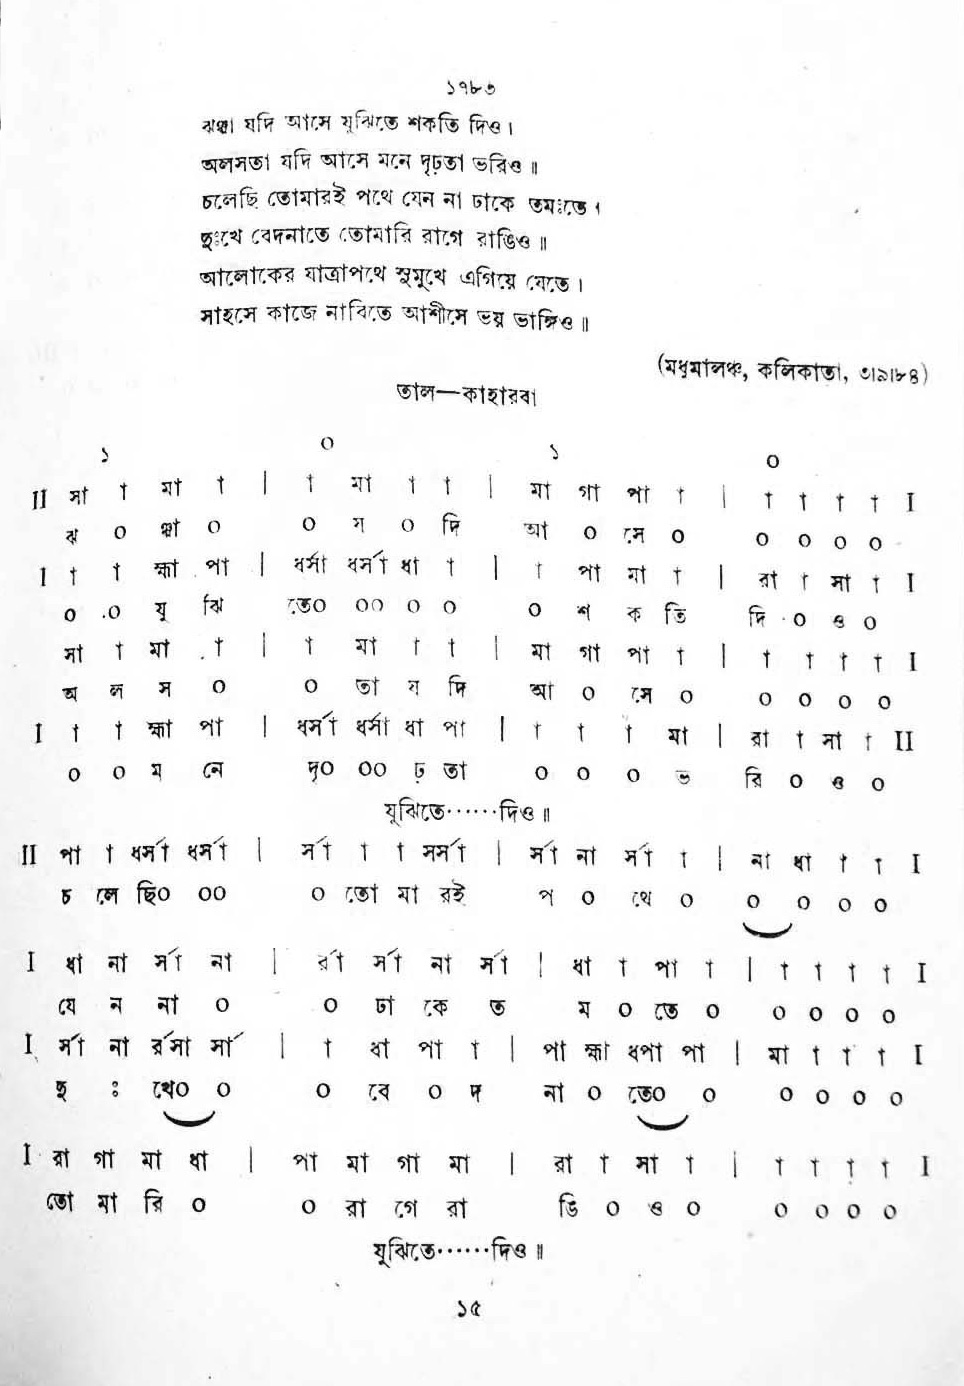 ১৭৮৩
ঝঞ্ঝা যদি আসে যুঝিতে শকতি দিও।
অলসতা যদি আসে মনে দৃঢ়তা ভরিও॥
চলেছি তোমারই পথে যেন না ঢাকে তমঃতে।
দুঃখে বেদনাতে তোমারি রাগে রাঙিও॥
আলোকের যাত্রাপথে সুমুখে এগিয়ে যেতে।
সাহসে কাজে নাবিতে আশীসে ভয় ভাঙ্গিও॥
(মধুমালঞ্চ, কলিকাতা, ৩।৯।৮৪)
তাল—কাহারবা
১ ০ ১ ০
II সা া মা া | া মা া া | মা গা পা া | া া া া I
ঝ ০ ঞ্ঝা ০ ০ য ০ দি আ ০ সে ০ ০ ০ ০ ০
I া া হ্মা পা | ধর্সা ধর্সা ধা া | া পা মা া | রা া সা া I
০ ০ যু ঝি তে০ ০০ ০ ০ ০ শ ক তি দি ০ ও ০
সা া মা া | া মা া া | মা গা পা া | া া া া I
অ ল স ০ ০ তা য দি আ ০ সে ০ ০ ০ ০ ০
I া া হ্মা পা | ধর্সা ধর্সা ধা পা | া া া মা | রা া সা া II
০ ০ ম নে দৃ০ ০০ ঢ় তা ০ ০ ০ ভ রি ০ ও ০
যুঝিতে······দিও॥
II পা া ধর্সা ধর্সা | র্সা া া র্সর্সা | র্সা না র্সা া | না ধা া া I
চ লে ছি০ ০০ ০ তো মা রই প ০ থে ০ ০ ০ ০ ০
I ধা না র্সা না | র্রা র্সা না র্সা | ধা া পা া | া া া া I
যে ন না ০ ০ ঢা কে ত ম ০ তে ০ ০ ০ ০ ০
I র্সা না র্রসা র্সা | া ধা পা া | পা হ্মা ধপা পা | মা া া া I
দু ঃ খে০ ০ ০ বে ০ দ না ০ তে০ ০ ০ ০ ০ ০
I রা গা মা ধা | পা মা গা মা | রা া সা া | া া া া I
তো মা রি ০ ০ রা গে রা ঙি ০ ও ০ ০ ০ ০ ০
যুঝিতে······দিও॥
১৫